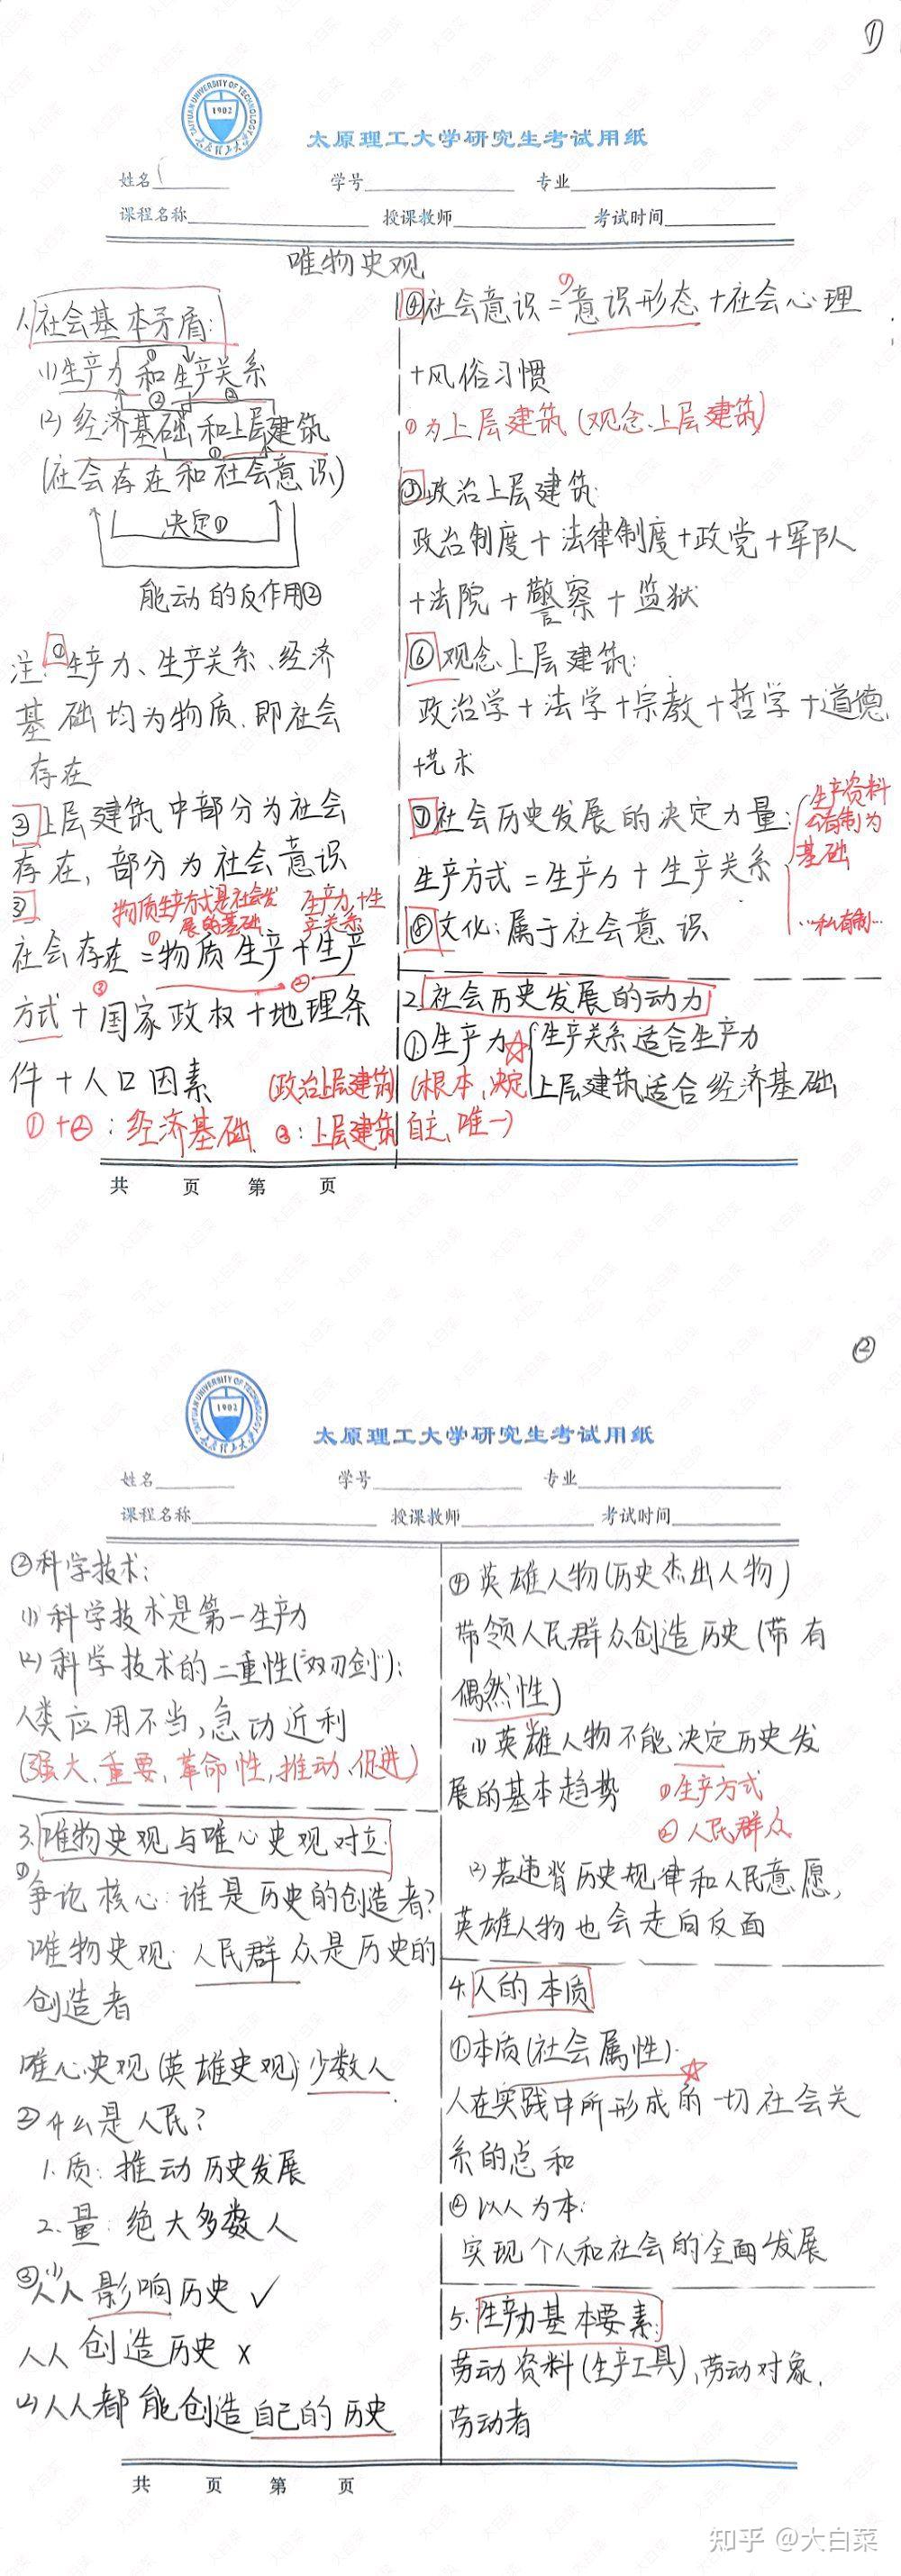 ①
TAIYUAN UNIVERSITY OF TECHNOLOGY
1902
太原理工大学
太原理工大学研究生考试用纸
姓名 学号 专业
课程名称 授课教师 考试时间
唯物史观
1.社会基本矛盾:
(1)生产力和生产关系
①
②
(2)经济基础和上层建筑
②
①
(社会存在和社会意识)
决定①
能动的反作用②
注:①生产力、生产关系、经济
基础均为物质,即社会
存在
②上层建筑中部分为社会
存在,部分为社会意识
③
物质生产方式是社会发
展的基础
生产力+生
产关系
社会存在=①物质生产+生产
②
方式+③国家政权+地理条
件+人口因素
(政治上层建筑)
①+②:经济基础 ③:上层建筑
④社会意识=①意识形态+社会心理
+风俗习惯
①为上层建筑(观念上层建筑)
⑤政治上层建筑:
政治制度+法律制度+政党+军队
+法院+警察+监狱
⑥观念上层建筑:
政治学+法学+宗教+哲学+道德
+艺术
⑦社会历史发展的决定力量:
生产方式=生产力+生产关系
生产资料
公有制为
基础
…私有制…
⑧文化:属于社会意识
2.社会历史发展的动力
①生产力☆ 生产关系适合生产力
(根本、决定 上层建筑适合经济基础
自主、唯一)
共 页 第 页
②
TAIYUAN UNIVERSITY OF TECHNOLOGY
1902
太原理工大学
太原理工大学研究生考试用纸
姓名 学号 专业
课程名称 授课教师 考试时间
②科学技术:
(1)科学技术是第一生产力
(2)科学技术的二重性("双刃剑"):
人类应用不当,急功近利
(强大、重要、革命性,推动、促进)
3.唯物史观与唯心史观对立.
①争论核心:谁是历史的创造者?
唯物史观:人民群众是历史的
创造者
唯心史观(英雄史观):少数人
②什么是人民?
1.质:推动历史发展
2.量:绝大多数人
③(1)人人影响历史 ✓
人人创造历史 x
(2)人人都能创造自己的历史
④英雄人物(历史杰出人物)
带领人民群众创造历史(带有
偶然性)
(1)英雄人物不能决定历史发
展的基本趋势
①生产方式
②人民群众
(2)若违背历史规律和人民意愿,
英雄人物也会走向反面
4.人的本质
①本质(社会属性):☆
人在实践中所形成的一切社会关
系的总和
②以人为本:
实现个人和社会的全面发展
5.生产力基本要素:
劳动资料(生产工具),劳动对象,
劳动者
共 页 第 页
知乎 @大白菜